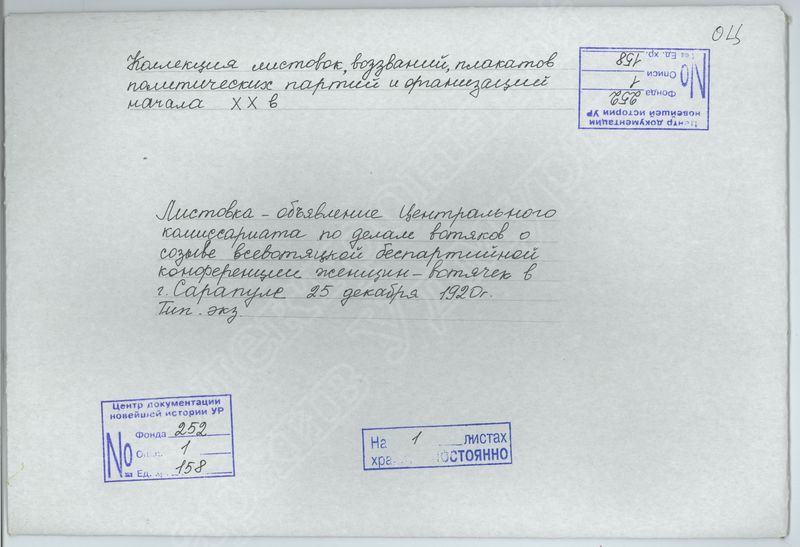 ОЦ
Коллекция листовок, воззваний, плакатов
политических партий и организаций
начала XX в
Центр документации
новейшей истории УР
Фонда 252
Описи 1
№ Ед. хр. 158
Листовка - объявление Центрального
комиссариата по делам вотяков о
созыве всевотяцкой беспартийной
конференции женщин-вотячек в
г. Сарапуле 25 декабря 1920г.
Тип. экз.
Центр документации
новейшей истории УР
Фонда 252
1
№ Ед. 158
На 1 листах